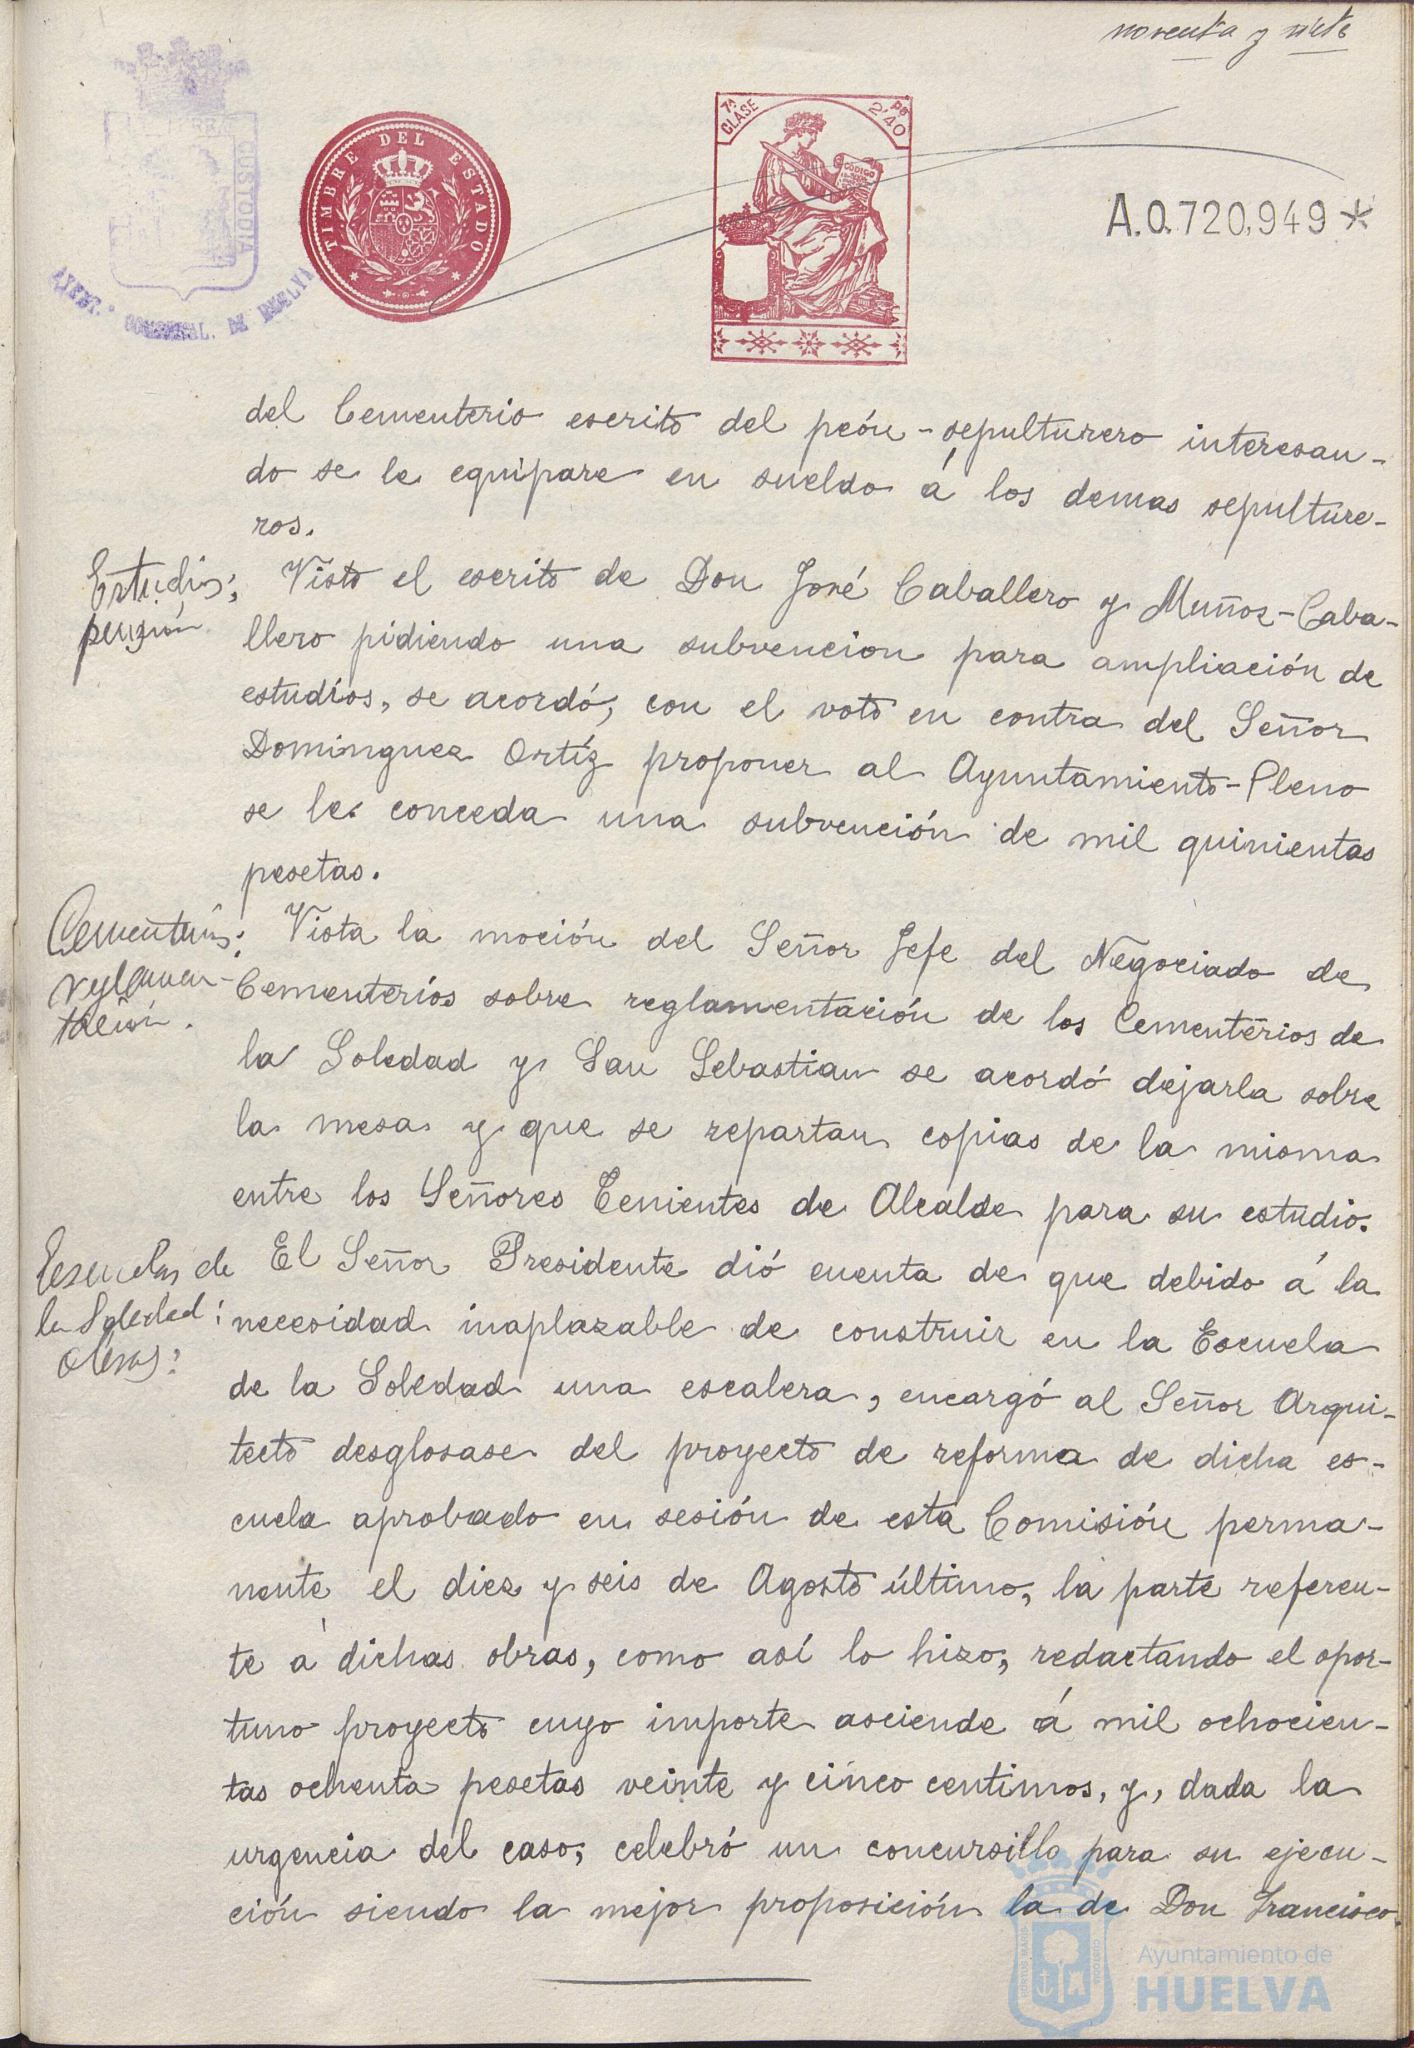 noventa y siete
TIMBRE DEL ESTADO
7ª CLASE
2'40
CÓDIGO
CUSTODIA
DE HUELVA
A.0.720,949*
del Cementerio escrito del peón-sepulturero interesan-
do se le equipare en sueldo á los demas sepulture-
ros.
Estudios;
pensión
Visto el escrito de Don José Caballero y Muñoz-Caba-
llero pidiendo una subvencion para ampliación de
estudios, se acordó, con el voto en contra del Señor
Dominguez Ortíz proponer al Ayuntamiento-Pleno
se le conceda una subvención de mil quinientas
pesetas.
Cementerios:
reglamen-
tación.
Vista la moción del Señor Jefe del Negociado de
Cementerios sobre reglamentación de los Cementerios de
la Soledad y San Sebastian se acordó dejarla sobre
la mesa y que se repartan copias de la misma
entre los Señores Tenientes de Alcalde para su estudio.
Escuelas de
la Soledad:
obras:
El Señor Presidente dió cuenta de que debido á la
necesidad inaplazable de construir en la Escuela
de la Soledad una escalera, encargó al Señor Arqui-
tecto desglosase del proyecto de reforma de dicha es-
cuela aprobado en sesión de esta Comisión perma-
nente el diez y seis de Agosto último, la parte referen-
te á dichas obras, como así lo hizo, redactando el opor-
tuno proyecto cuyo importe asciende á mil ochocien-
tas ochenta pesetas veinte y cinco centimos, y, dada la
urgencia del caso, celebró un concursillo para su ejecu-
ción siendo la mejor proposición la de Don Francisco
Ayuntamiento de
HUELVA